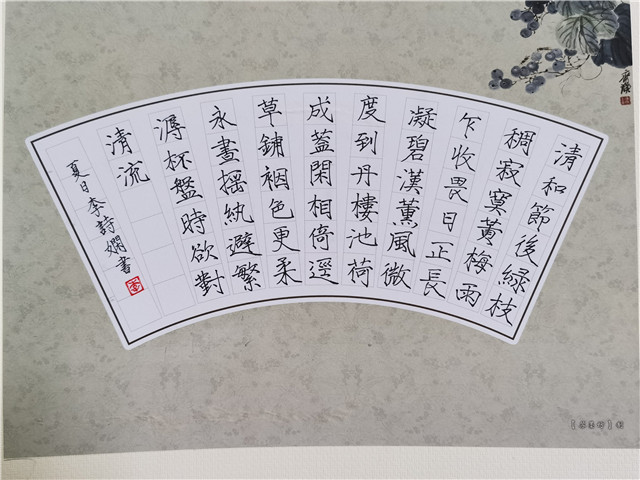 清和節後綠枝
稠寂寞黃梅雨
乍收畏日正長
凝碧漢薰風微
度到丹樓池荷
成蓋閑相倚逕
草鋪裀色更柔
永晝搖紈避繁
溽杯盤時欲對
清流
夏日李詩嫻書
李